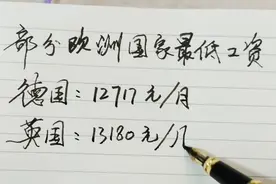 部分欧洲国家最低工资
德国：12717元/月
英国：13180元/几